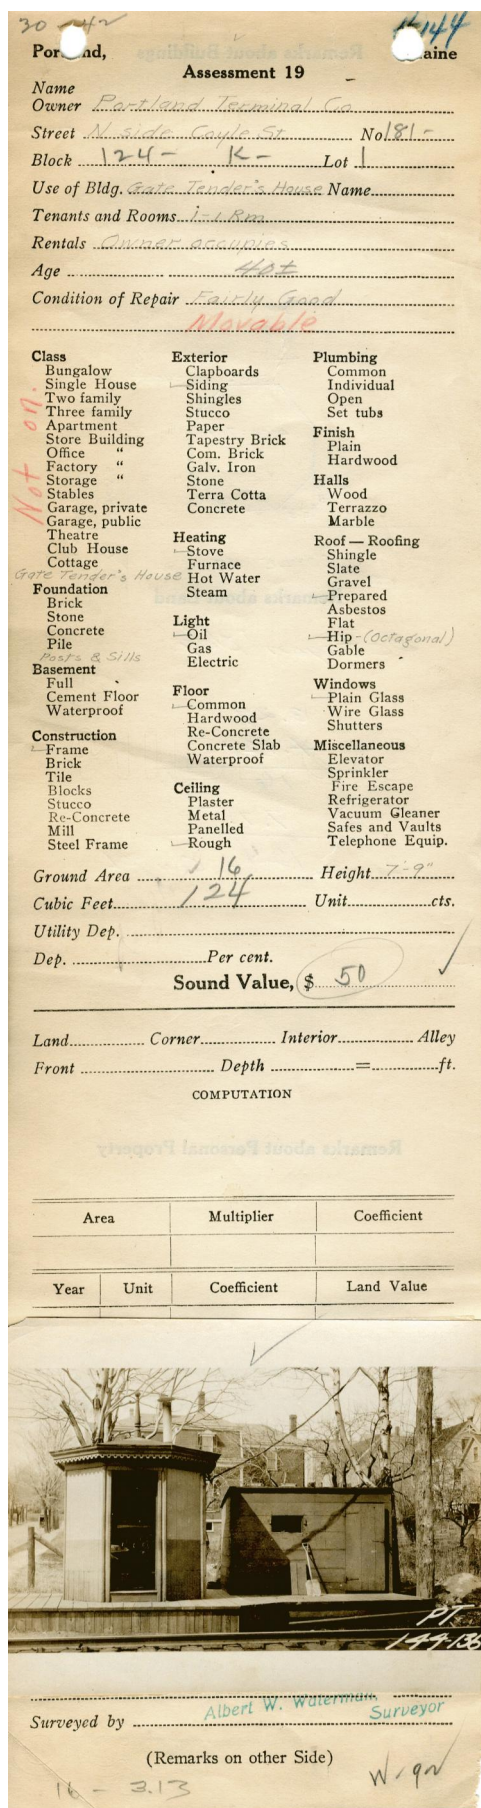 30-42
144
Portland, Maine
Assessment 19
Name
Owner Portland Terminal Co
Street N side Coyle St. No 181-
Block 124- K- Lot 1
Use of Bldg. Gate Tender's House Name
Tenants and Rooms 1-1 Rm
Rentals Owner occupies
Age 40±
Condition of Repair Fairly Good
Movable
Not on.
Class
Bungalow
Single House
Two family
Three family
Apartment
Store Building
Office "
Factory "
Storage "
Stables
Garage, private
Garage, public
Theatre
Club House
Cottage
Gate Tender's House
Foundation
Brick
Stone
Concrete
Pile
Posts & Sills
Basement
Full
Cement Floor
Waterproof
Construction
Frame
Brick
Tile
Blocks
Stucco
Re-Concrete
Mill
Steel Frame
Exterior
Clapboards
Siding
Shingles
Stucco
Paper
Tapestry Brick
Com. Brick
Galv. Iron
Stone
Terra Cotta
Concrete
Heating
Stove
Furnace
Hot Water
Steam
Light
Oil
Gas
Electric
Floor
Common
Hardwood
Re-Concrete
Concrete Slab
Waterproof
Ceiling
Plaster
Metal
Panelled
Rough
Plumbing
Common
Individual
Open
Set tubs
Finish
Plain
Hardwood
Halls
Wood
Terrazzo
Marble
Roof — Roofing
Shingle
Slate
Gravel
Prepared
Asbestos
Flat
Hip - (Octagonal)
Gable
Dormers
Windows
Plain Glass
Wire Glass
Shutters
Miscellaneous
Elevator
Sprinkler
Fire Escape
Refrigerator
Vacuum Gleaner
Safes and Vaults
Telephone Equip.
Ground Area 16 Height 7'-9"
Cubic Feet 124 Unit cts.
Utility Dep.
Dep. Per cent.
Sound Value, $ 50
Land Corner Interior Alley
Front Depth = ft.
COMPUTATION
Area Multiplier Coefficient
Year Unit Coefficient Land Value
PT
144-136
Surveyed by Albert W. Waterman, Surveyor
(Remarks on other Side)
16 - 3.13